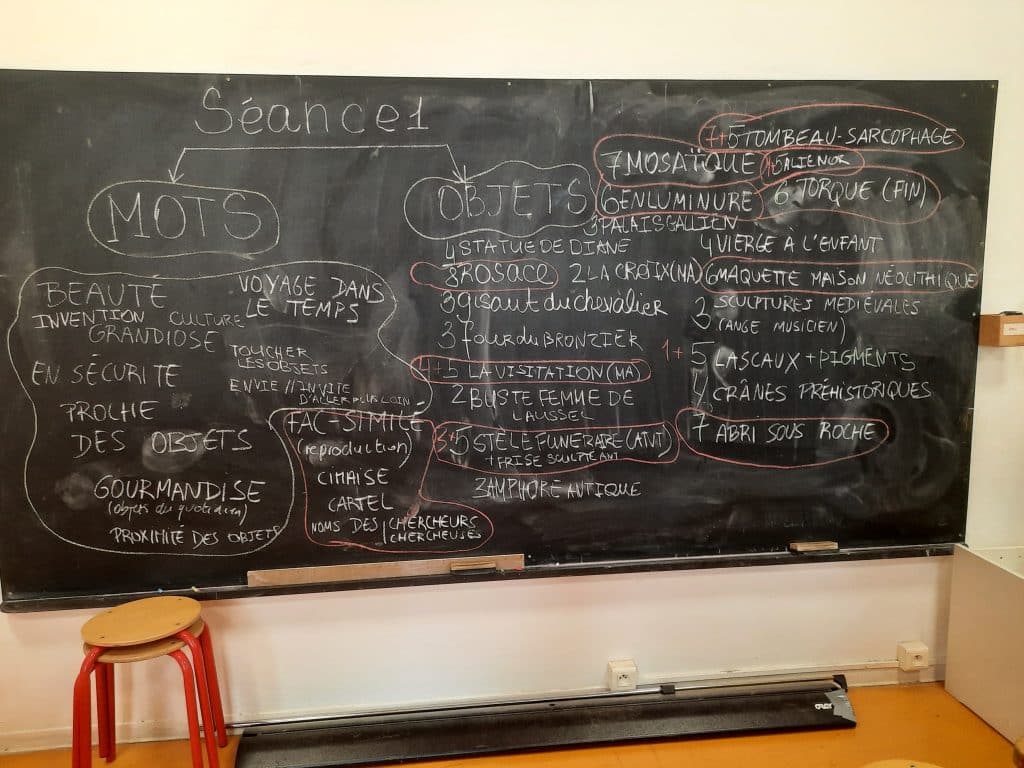 Séance 1
MOTS
BEAUTÉ
VOYAGE DANS
LE TEMPS
INVENTION CULTURE
GRANDIOSE
TOUCHER
LES OBJETS
EN SÉCURITÉ
ENVIE // INVITE
D'ALLER PLUS LOIN
PROCHE
DES OBJETS
GOURMANDISE
(objets du quotidien)
PROXIMITÉ DES OBJETS
FAC-SIMILÉ
(reproduction)
CIMAISE
CARTEL
NOMS DES CHERCHEURS
CHERCHEUSES
OBJETS
3 PALAIS GALLIEN
4 STATUE DE DIANE
8 ROSACE 2 LA CROIX (NA)
3 gisant du chevalier
3 Four du BRONZIER
4+5 LA VISITATION (MA)
2 BUSTE FEMME DE
LAUSSEL
3+5 STÈLE FUNÉRAIRE (ATVT)
+ FRISE SCULPTÉ ANT
3 AMPHORE ANTIQUE
7+5 TOMBEAU-SARCOPHAGE
7 MOSAÏQUE
ALIENOR
6 ENLUMINURE
6 TORQUE (FIN)
4 VIERGE À L'ENFANT
6 MAQUETTE MAISON NÉOLITHIQUE
3 SCULPTURES MEDIÉVALES
(ANGE MUSICIEN)
1+5 LASCAUX + PIGMENTS
4 CRÂNES PRÉHISTORIQUES
7 ABRI SOUS ROCHE